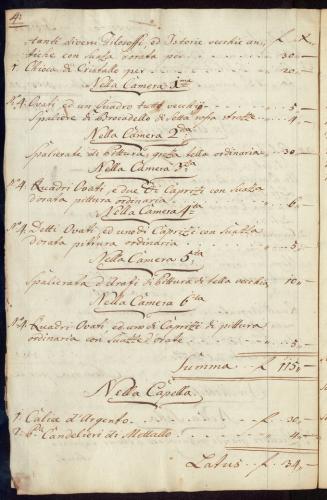 4.
tanti diversi Filosoffi, ed Istorie vecchie an=
tiche con Suaza dorata per . . . f. 30,-
1. Chioca di Cristallo per . . . 20,-
Nella Camera 1ma
No. 4. Ovati, ed un Quadro tutti vecchio . . . 5,-
Spaliere di Brocadello di Setta rossa . . . 4,-
Nella Camera 2da
Spalierate di Pittura, tella ordinaria . . . 30,-
Nella Camera 3za
No. 4. Quadri Ovati, e due di Caprizi con Suaza
dorata pittura ordinaria . . . 6,-
Nella Camera 4ta
No. 4. Detti Ovati, ed uno di Caprizzi con Suazza
dorata pittura ordinaria . . . 5,-
Nella Camera 5ta
Spalierata d'Arasi di Pittura di tella vecchia 10,-
Nella Camera 6ta
No. 4. Quadri Ovati, ed uno di Caprizi di pittura
ordinaria con Suazze dorate . . . 5,-
Summa . . f. 115,-
Nella Capella
1. Calice d'Argento . . . f. 30,-
1. Candelieri di Mettallo . . . 4,-
Latus . . f. 34,-